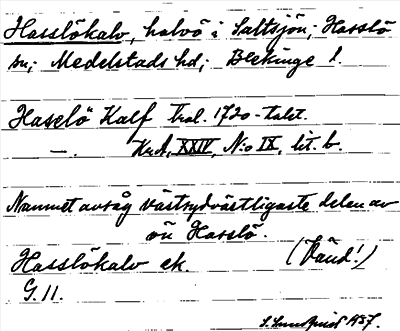 Hasslökalv, halvö i Saltsjön; Hasslö
sn; Medelstads hd; Blekinge l.
Haselö Kalf tral. 1720-talet.
—. Kr.A, XXIV, N:o IX, lit. b.
Namnet avsåg västsydvästligaste delen av
ön Hasslö.
Hasslökalv ek. (Vänd!)
G. 11.
S. Lundquist 1937.